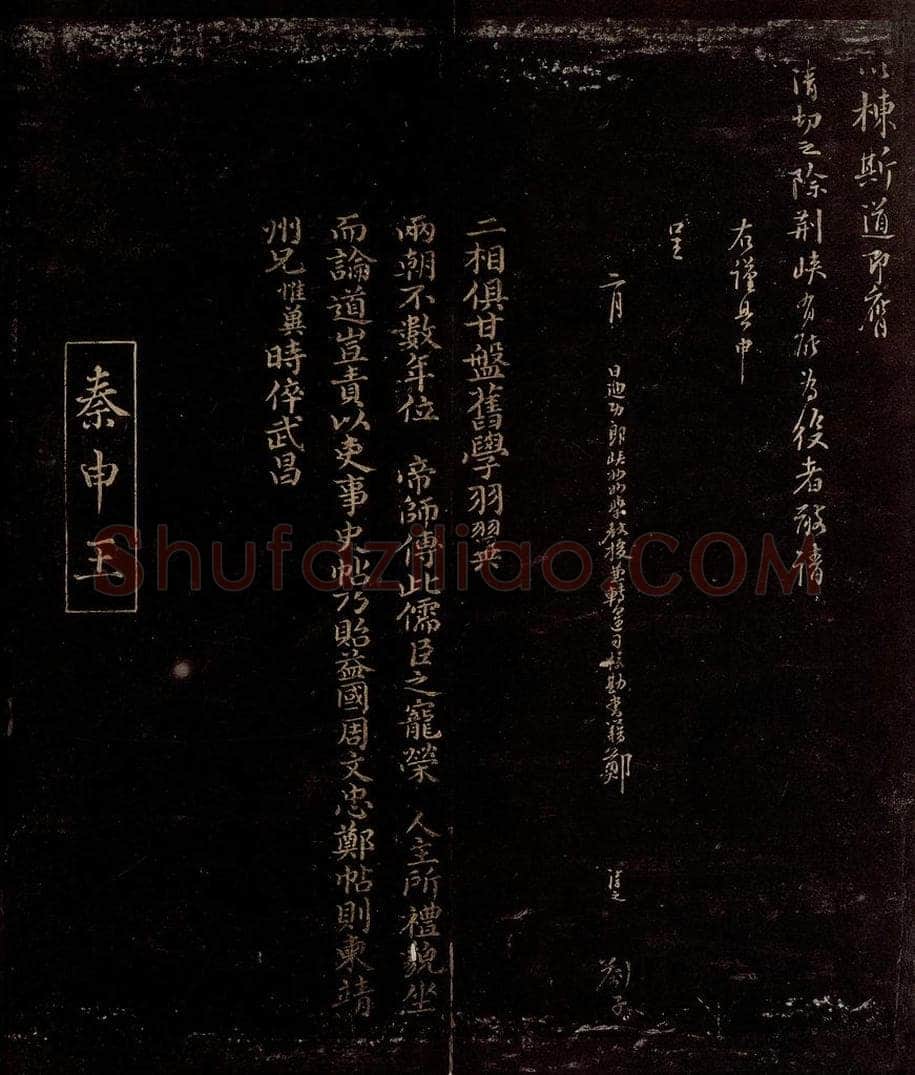 以棟斯道即膺
清切之除荊峽有所為役者敬請
右謹具申
呈
二月 日迪功郎峽州州學教授兼轉運司校勘書籍鄭 清之 劄子
二相俱甘盤舊學羽翼
兩朝不數年位 帝師傅此儒臣之寵榮 人主所禮貌坐
而論道豈責以吏事史帖乃貽益國周文忠鄭帖則柬靖
州兄惟冀時倅武昌
秦申王
Shufaziliao.COM